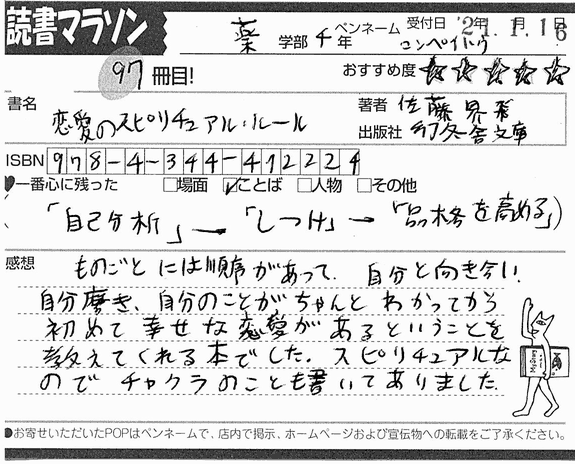 読書マラソン
薬 学部 4 年 ペンネーム コンペイトウ 受付日 '21年1月16
97 冊目! おすすめ度 ☆☆☆☆☆
書名 恋愛のスピリチュアル・ルール
著者 佐藤
出版社 幻冬舎文庫
ISBN 978-4-344-412224
♥一番心に残った □場面 ☑ことば □人物 □その他
「自己分析」→「しつけ」→「品格を高める」
感想 ものごとには順序があって、自分と向き合い
自分磨き、自分のことがちゃんとわかってから
初めて幸せな恋愛があるということを
教えてくれる本でした。スピリチュアルな
のでチャクラのことも書いてありました
●お寄せいただいたPOPはペンネームで、店内で掲示、ホームページおよび宣伝物への転載をご了承ください。